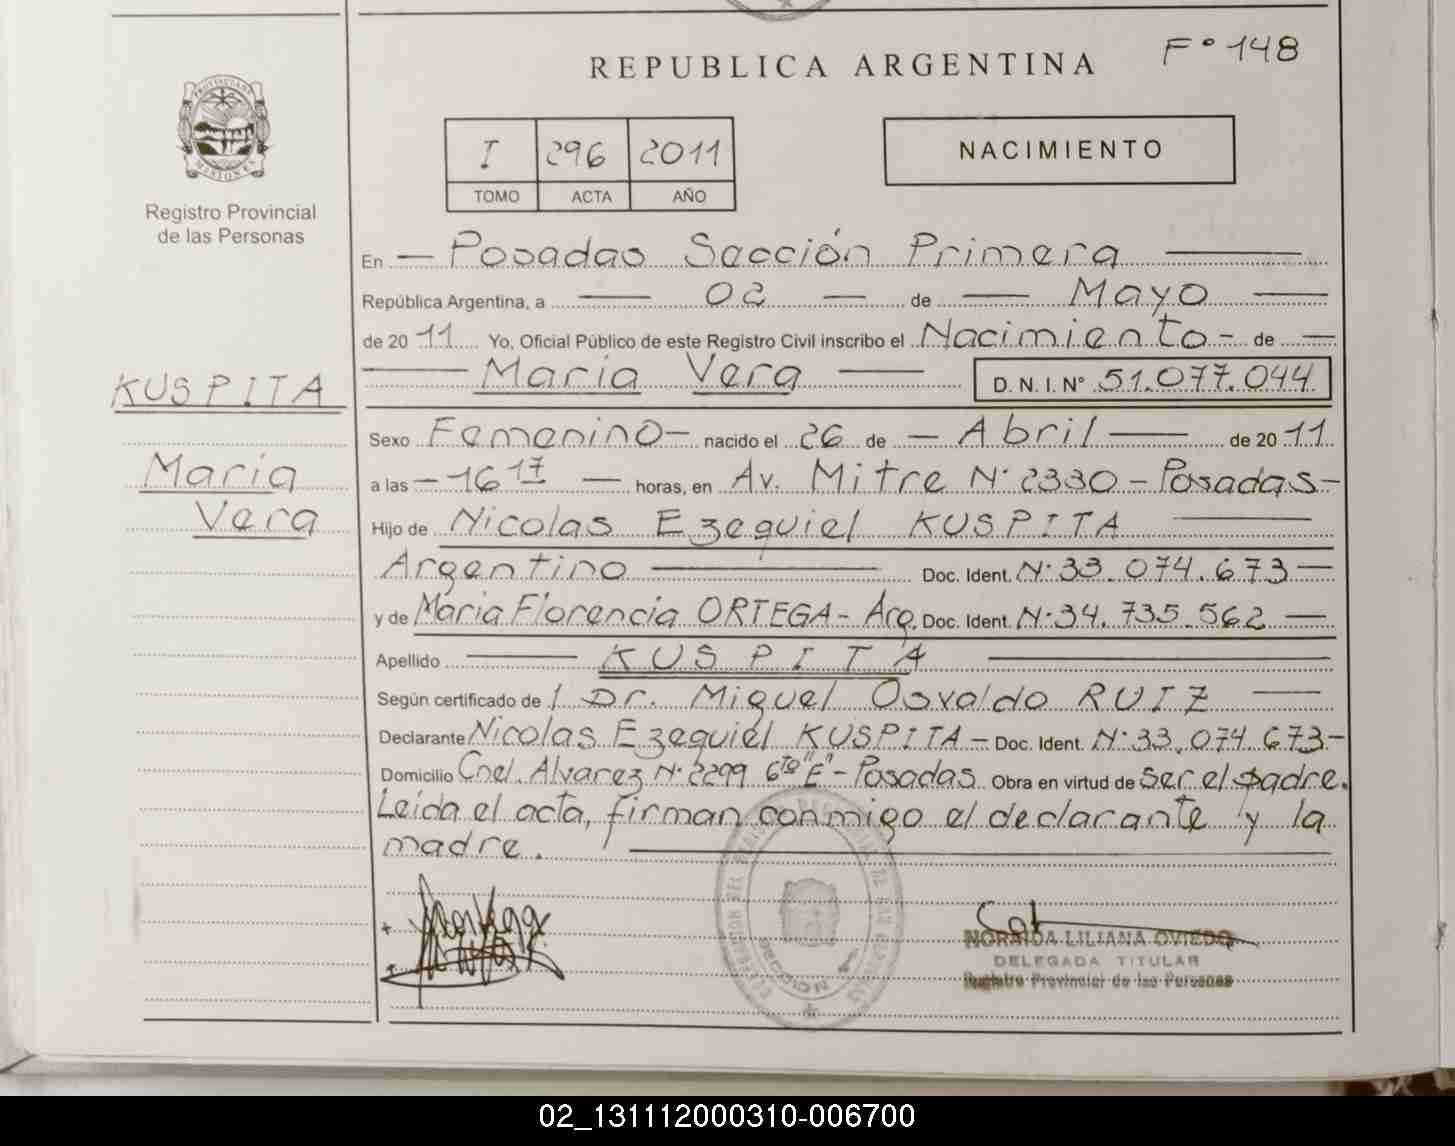 F° 148
REPUBLICA ARGENTINA
PROVINCIA DE MISIONES
Registro Provincial
de las Personas
I 296 2011
TOMO ACTA AÑO
NACIMIENTO
En — Posadas Sección Primera —
República Argentina, a — 02 — de — Mayo —
de 2011 Yo, Oficial Público de este Registro Civil inscribo el Nacimiento - de —
— Maria Vera — D.N.I. N° 51.077.044
KUSPITA
Maria
Vera
Sexo Femenino - nacido el 26 de — Abril — de 2011
a las - 16 17 — horas, en Av. Mitre N° 2330 - Posadas -
Hijo de Nicolas Ezequiel KUSPITA —
Argentino — Doc. Ident. N° 33.074.673 —
y de Maria Florencia ORTEGA - Arg. Doc. Ident. N° 34.735.562 —
Apellido — KUSPITA —
Según certificado de / Dr. Miguel Osvaldo RUIZ —
Declarante Nicolas Ezequiel KUSPITA - Doc. Ident. N° 33.074.673 -
Domicilio Cnel. Alvarez N° 2299 6to "E" - Posadas Obra en virtud de ser el padre.
Leida el acta, firman conmigo el declarante y la
madre. —
NORAIDA LILIANA OVIEDO
DELEGADA TITULAR
Registro Provincial de las Personas
02_131112000310-006700